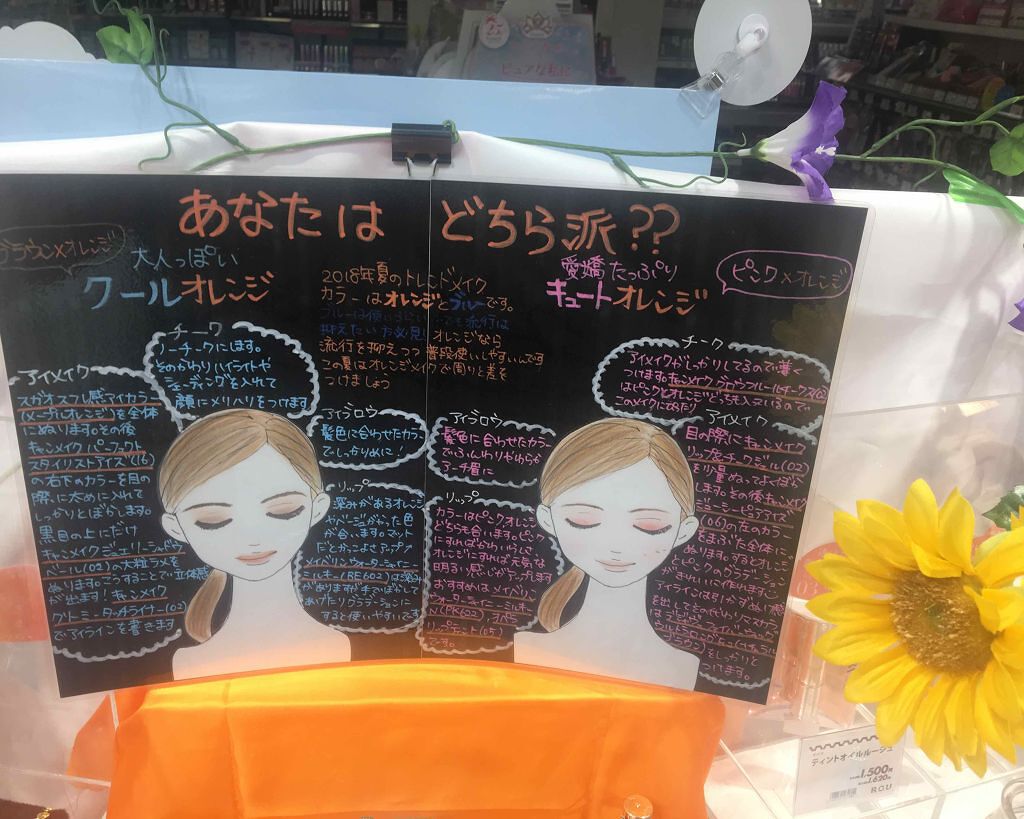 ピュアな私に
あなたは どちら派??
ブラウン×オレンジ
大人っぽい
クールオレンジ
2018年夏のトレンドメイク
カラーはオレンジとブルーです。
ブルーは使い
抑えたい方必見!オレンジなら
流行を抑えつつ普段使いしやすいんです
この夏はオレンジメイクで周りと差を
つけましょう
愛嬌たっぷり
キュートオレンジ
ピンク×オレンジ
チーク
ノーチークにします。
そのかわりハイライトや
シェーディングを入れて
顔にメリハリをつけます
アイメイク
スガオスフレ感アイカラー
(メープルオレンジ)を全体
にぬります。その後
キャンメイクパーフェクト
スタイリストアイズ(16)
の右下のカラーを目の
際に太めに入れて
しっかりとぼかします。
黒目の上にだけ
キャンメイクジュエリーシャドウ
ベール(02)の大粒ラメを
ぬります。こうすることで立体感
が出ます!キャンメイク
クリーミータッチライナー(02)
でアイラインを書きます
アイブロウ
髪色に合わせたカラー
でしっかりめに!
リップ
深みがあるオレンジ
やベージュがかった色
が合います。マット
だとかっこよさアップ
メイベリンウォーターシャイニー
ミルキー(BE602)は深み
がありますが手でぼかして
あげたりグラデーションに
すると使いやすいです
アイブロウ
髪色に合わせたカラー
でふんわりやわらか
アーチ眉に
リップ
カラーはピンクオレンジ
どちらも合います。ピンク
にすればかわいらしく
オレンジにすれば元気な
明るい感じがアップします
おすすめはメイベリン
ウォーターシャイニーミルキー
(PK602)、オペラ
リップティント(05)
です。
チーク
アイメイクがしっかりしてるので薄く
つけます。キャンメイクグロウフルールチークス(02)
はピンクとオレンジどっちも入っているので
このメイクにぴったり
アイメイク
目の際にキャンメイク
リップ&チークジェル(02)
を少量ぬってよくぼかし
します。その後キャンメイク
ジューシーピュアアイズ
(06)の左のカラー
をまぶた全体に
ぬります。するとオレンジ
とピンクのグラデーション
がきれいに作れます。
アイラインは引かずぬけ感
を出してその代わりマスカラ
をしっかりと
つけます。
ティントオイルルージュ
1,500円
1,620円
R.O.U